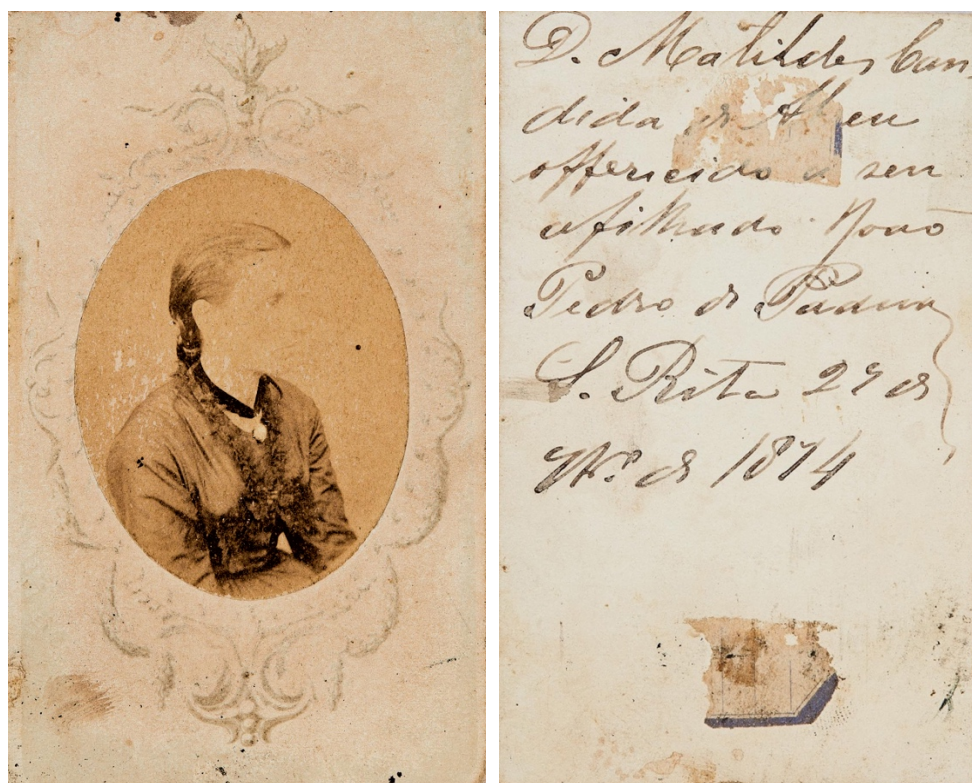 D. Matildes Can
dida de Abreu
offericido a seu
afilhado João
Pedro de Padua
S. Rita 27 de
de 1874